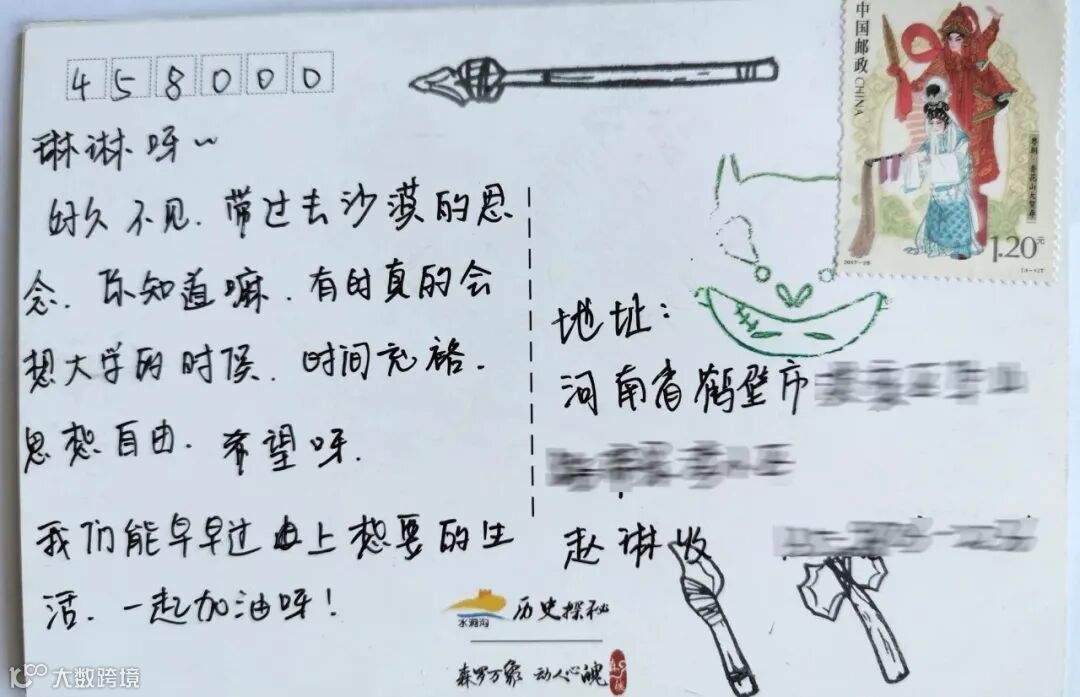 中国邮政 CHINA
458000
琳琳呀~
好久不见.带过去沙漠的思
念.你知道嘛.有时真的会
想大学的时候.时间充裕.
思想自由.希望呀.
我们能早早过上想要的生
活.一起加油呀!
1.20元
地址:
河南省鹤壁市
赵琳收
水洞沟
历史探秘
森罗万象 动人心魄
大数跨境